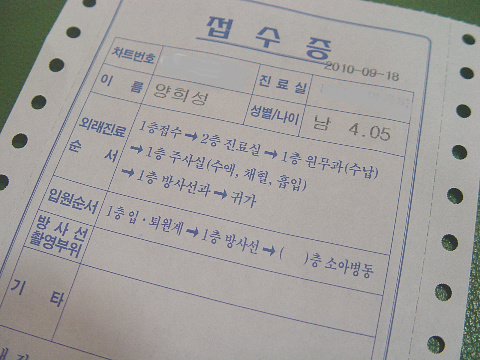 접수증
2010-09-18
차트번호 진료실
이름 양희성 성별/나이 남 4.05
외래진료순서 1층접수 → 2층 진료실 → 1층 원무과(수납)
→ 1층 주사실(수액, 채혈, 흡입)
→ 1층 방사선과 → 귀가
입원순서 1층 입·퇴원계 → 1층 방사선 → ( )층 소아병동
방사선
촬영부위
기타